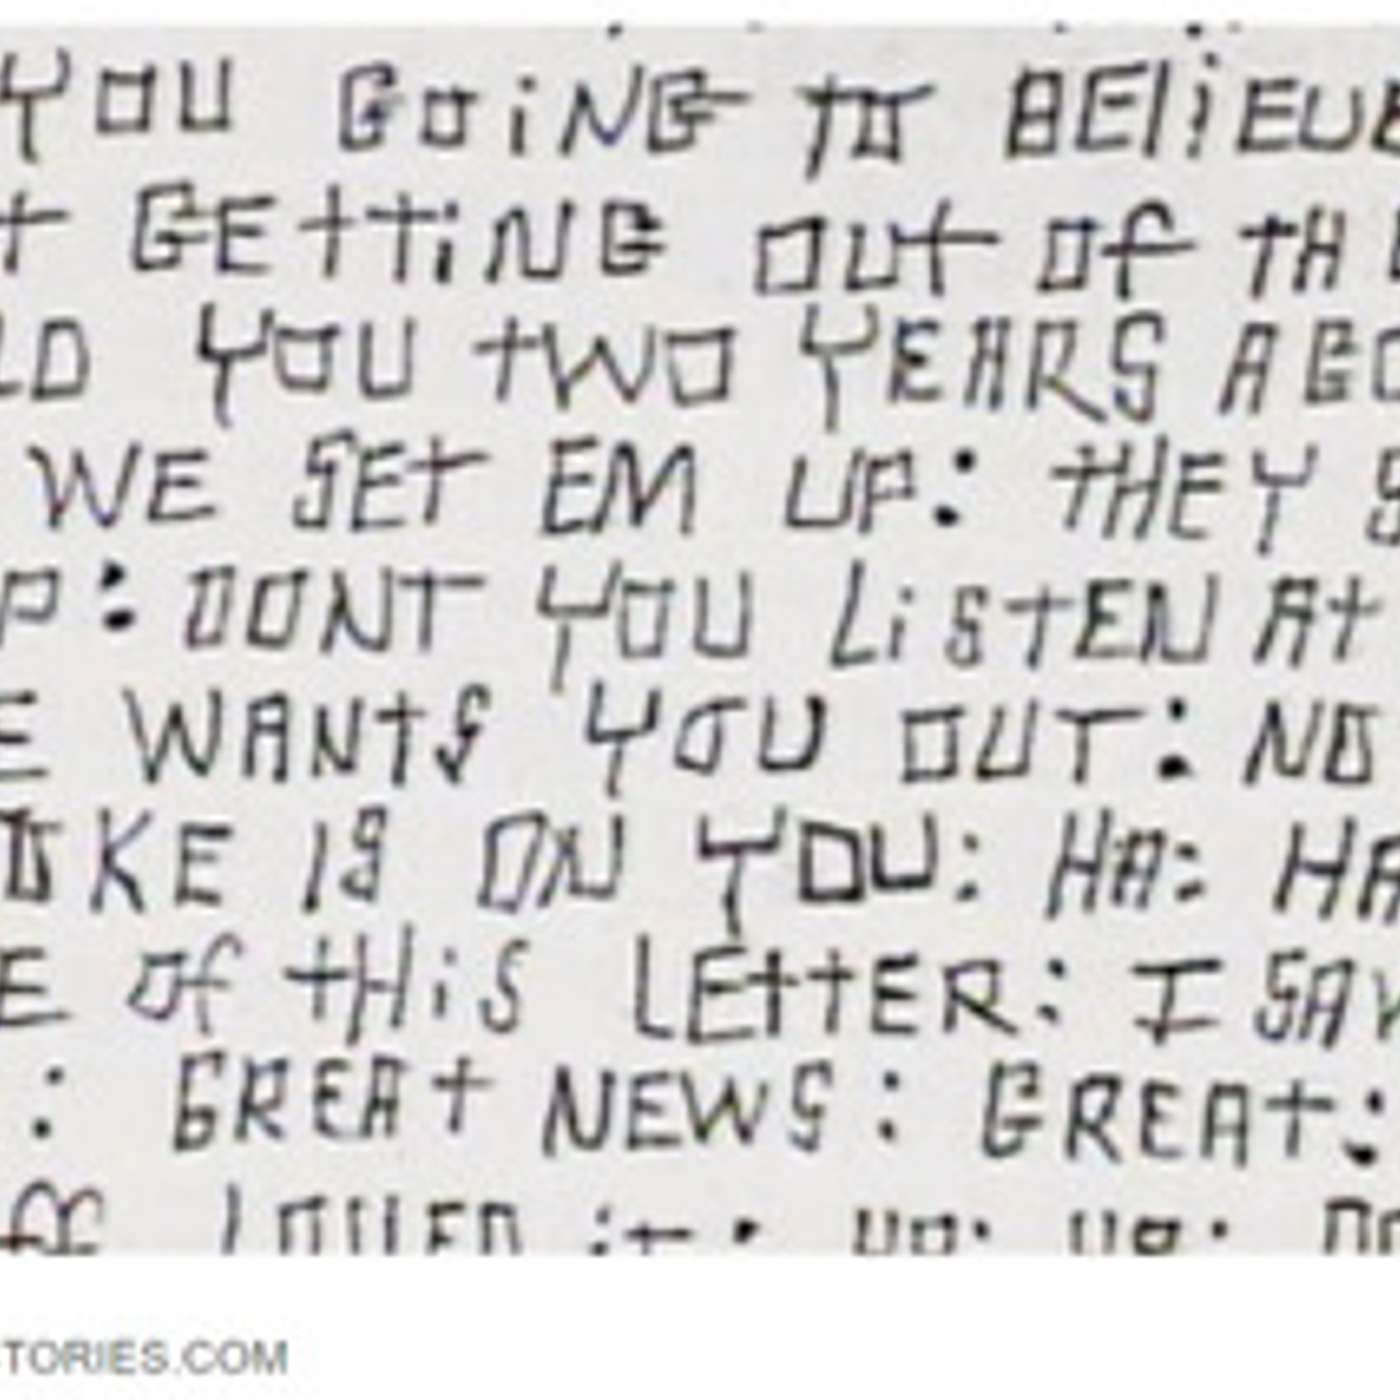 YOU GOiNG TO BEliEVE
t GEttiNG OUt Of tH
LD YOU tWO YEARS AGO
WE SEt EM UP: tHEY S
P: DONT YOU LiStEN At
E WANtS YOU OUT: NO
OKE IS ON YOU: HA: HA
E Of tHiS LEttER: I SAY
: GREAt NEWS: GREAt:
ff LOVED it: HA: HA:
STORIES.COM